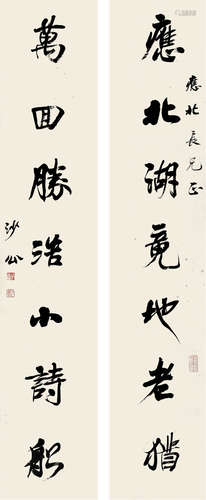 應北湖竟地老
應北長兄正
萬回勝浩小詩船
沙公